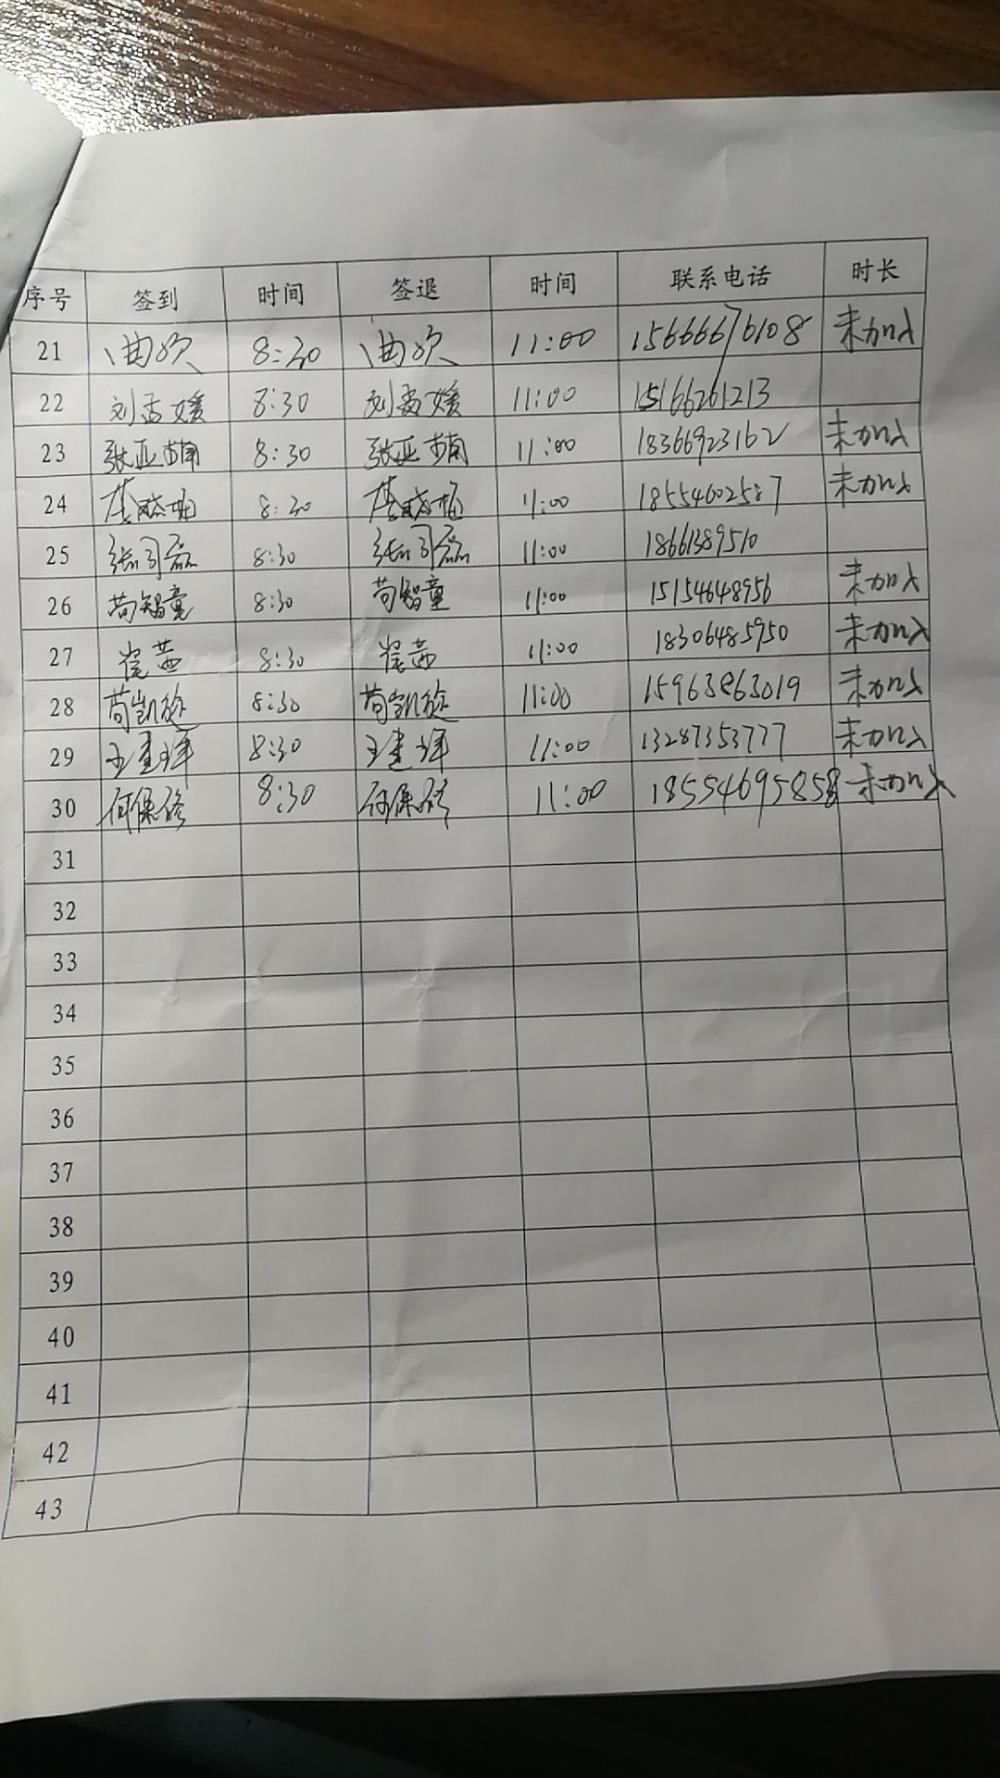 序号 签到 时间 签退 时间 联系电话 时长
21 曲欢 8:30 曲欢 11:00 15666676108 未加入
22 刘孟媛 8:30 刘孟媛 11:00 15166261213
23 张亚楠 8:30 张亚楠 11:00 18366923162 未加入
24 8:30 11:00 18554602587 未加入
25 张司磊 8:30 张司磊 11:00 18661389510
26 苟智童 8:30 苟智童 11:00 15154648956 未加入
27 崔茜 8:30 崔茜 11:00 18306485950 未加入
28 苟凯旋 8:30 苟凯旋 11:00 15963863019 未加入
29 王建祥 8:30 王建祥 11:00 13287353777 未加入
30 何保路 8:30 何保路 11:00 18554695858 未加入
31
32
33
34
35
36
37
38
39
40
41
42
43